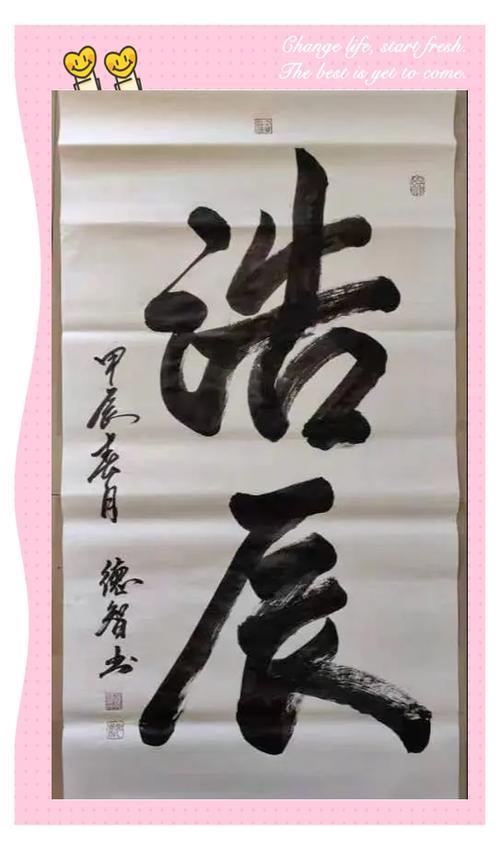 Change life, start fresh.
The best is yet to come.
浩辰
甲辰春月 德智书